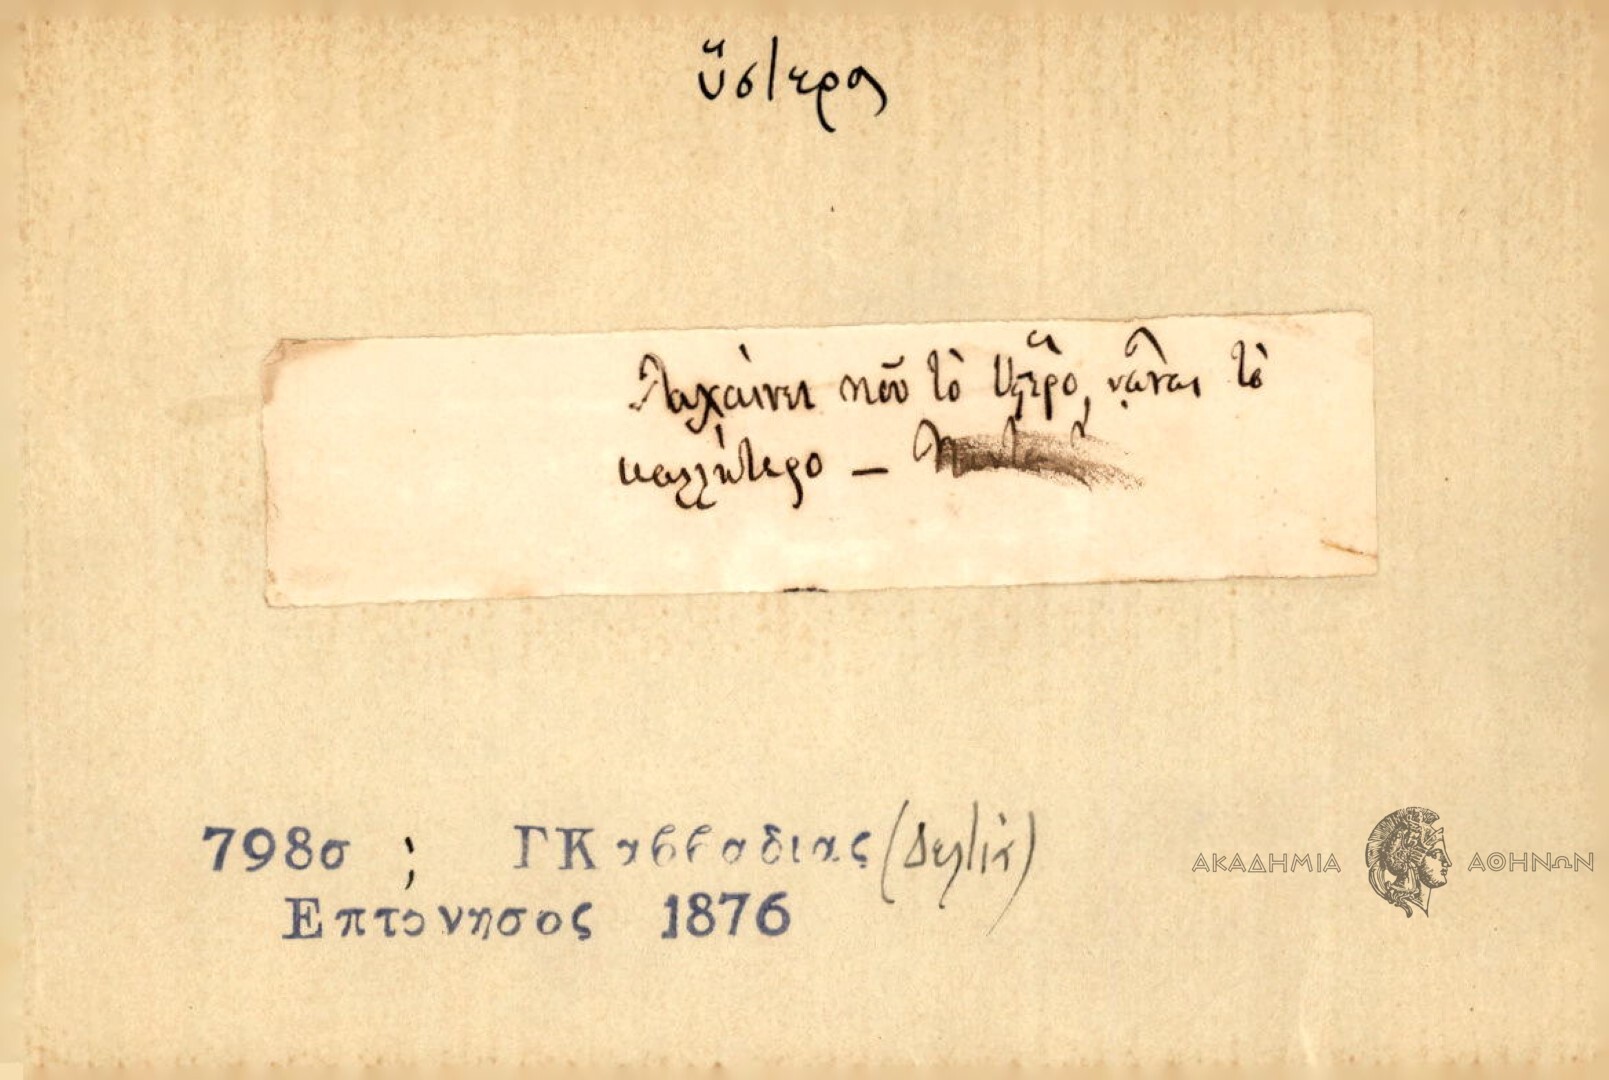 ὕστερα
Λαχαίνει ποῦ τὸ ὕστερο, νᾶναι τὸ
καλλήτερο –
798σ ; ΓΚαββαδιας (Δελτία)
Επτονησος 1876
ΑΚΑΔΗΜΙΑ ΑΘΗΝΩΝ